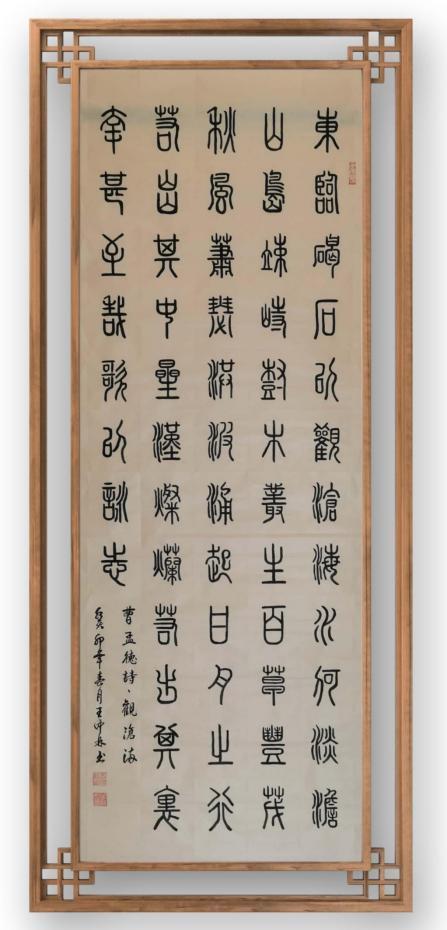 東臨碣石以觀滄海水何淡澹
山島竦峙樹木叢生百草豐茂
秋風蕭瑟洪波涌起日月之行
若出其中星漢燦爛若出其裏
幸甚至哉歌以詠志
曹孟德詩、觀滄海
癸卯年春月王中森书